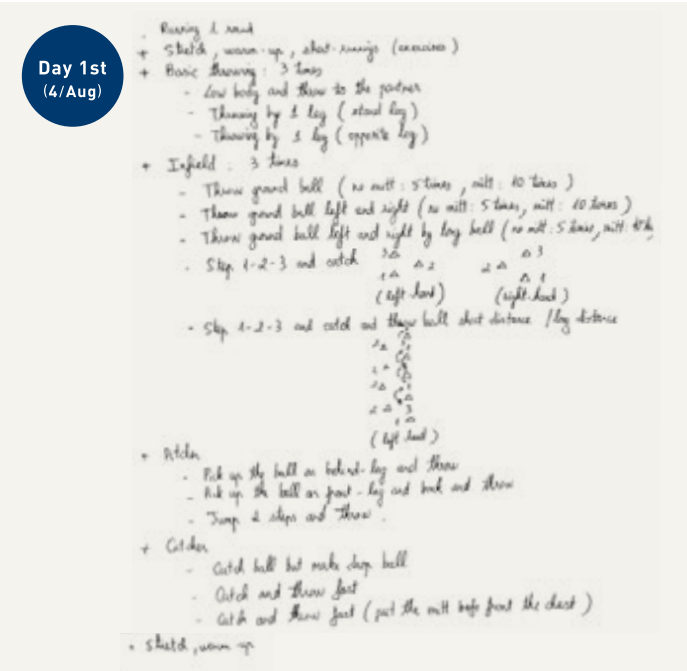 Day 1st
(4/Aug)
. Running 1 round
+ Stretch, warm-up, short-runnings (exercises)
+ Basic throwing : 3 times
- Low body and throw to the partner
- Throwing by 1 leg (stand leg)
- Throwing by 1 leg (opposite leg)
+ Infield : 3 times
- Throw ground ball (no mitt : 5 times, mitt : 10 times)
- Throw ground ball left and right (no mitt : 5 times, mitt : 10 times)
- Throw ground ball left and right by long ball (no mitt : 5 times, mitt : 10
- Step 1-2-3 and catch
3△ △3
△2 2△
1△ △1
(left-hand) (right-hand)
- Step 1-2-3 and catch and throw ball short distance / long distance
(left-hand)
+ Pitcher
- Pick up the ball on behind-leg and throw
- Pick up the ball on front-leg and back and throw
- Jump 2 steps and throw.
+ Catcher
- Catch ball but make drop ball
- Catch and throw fast
- Catch and throw fast (put the mitt before front the chest)
- Stretch, warm up